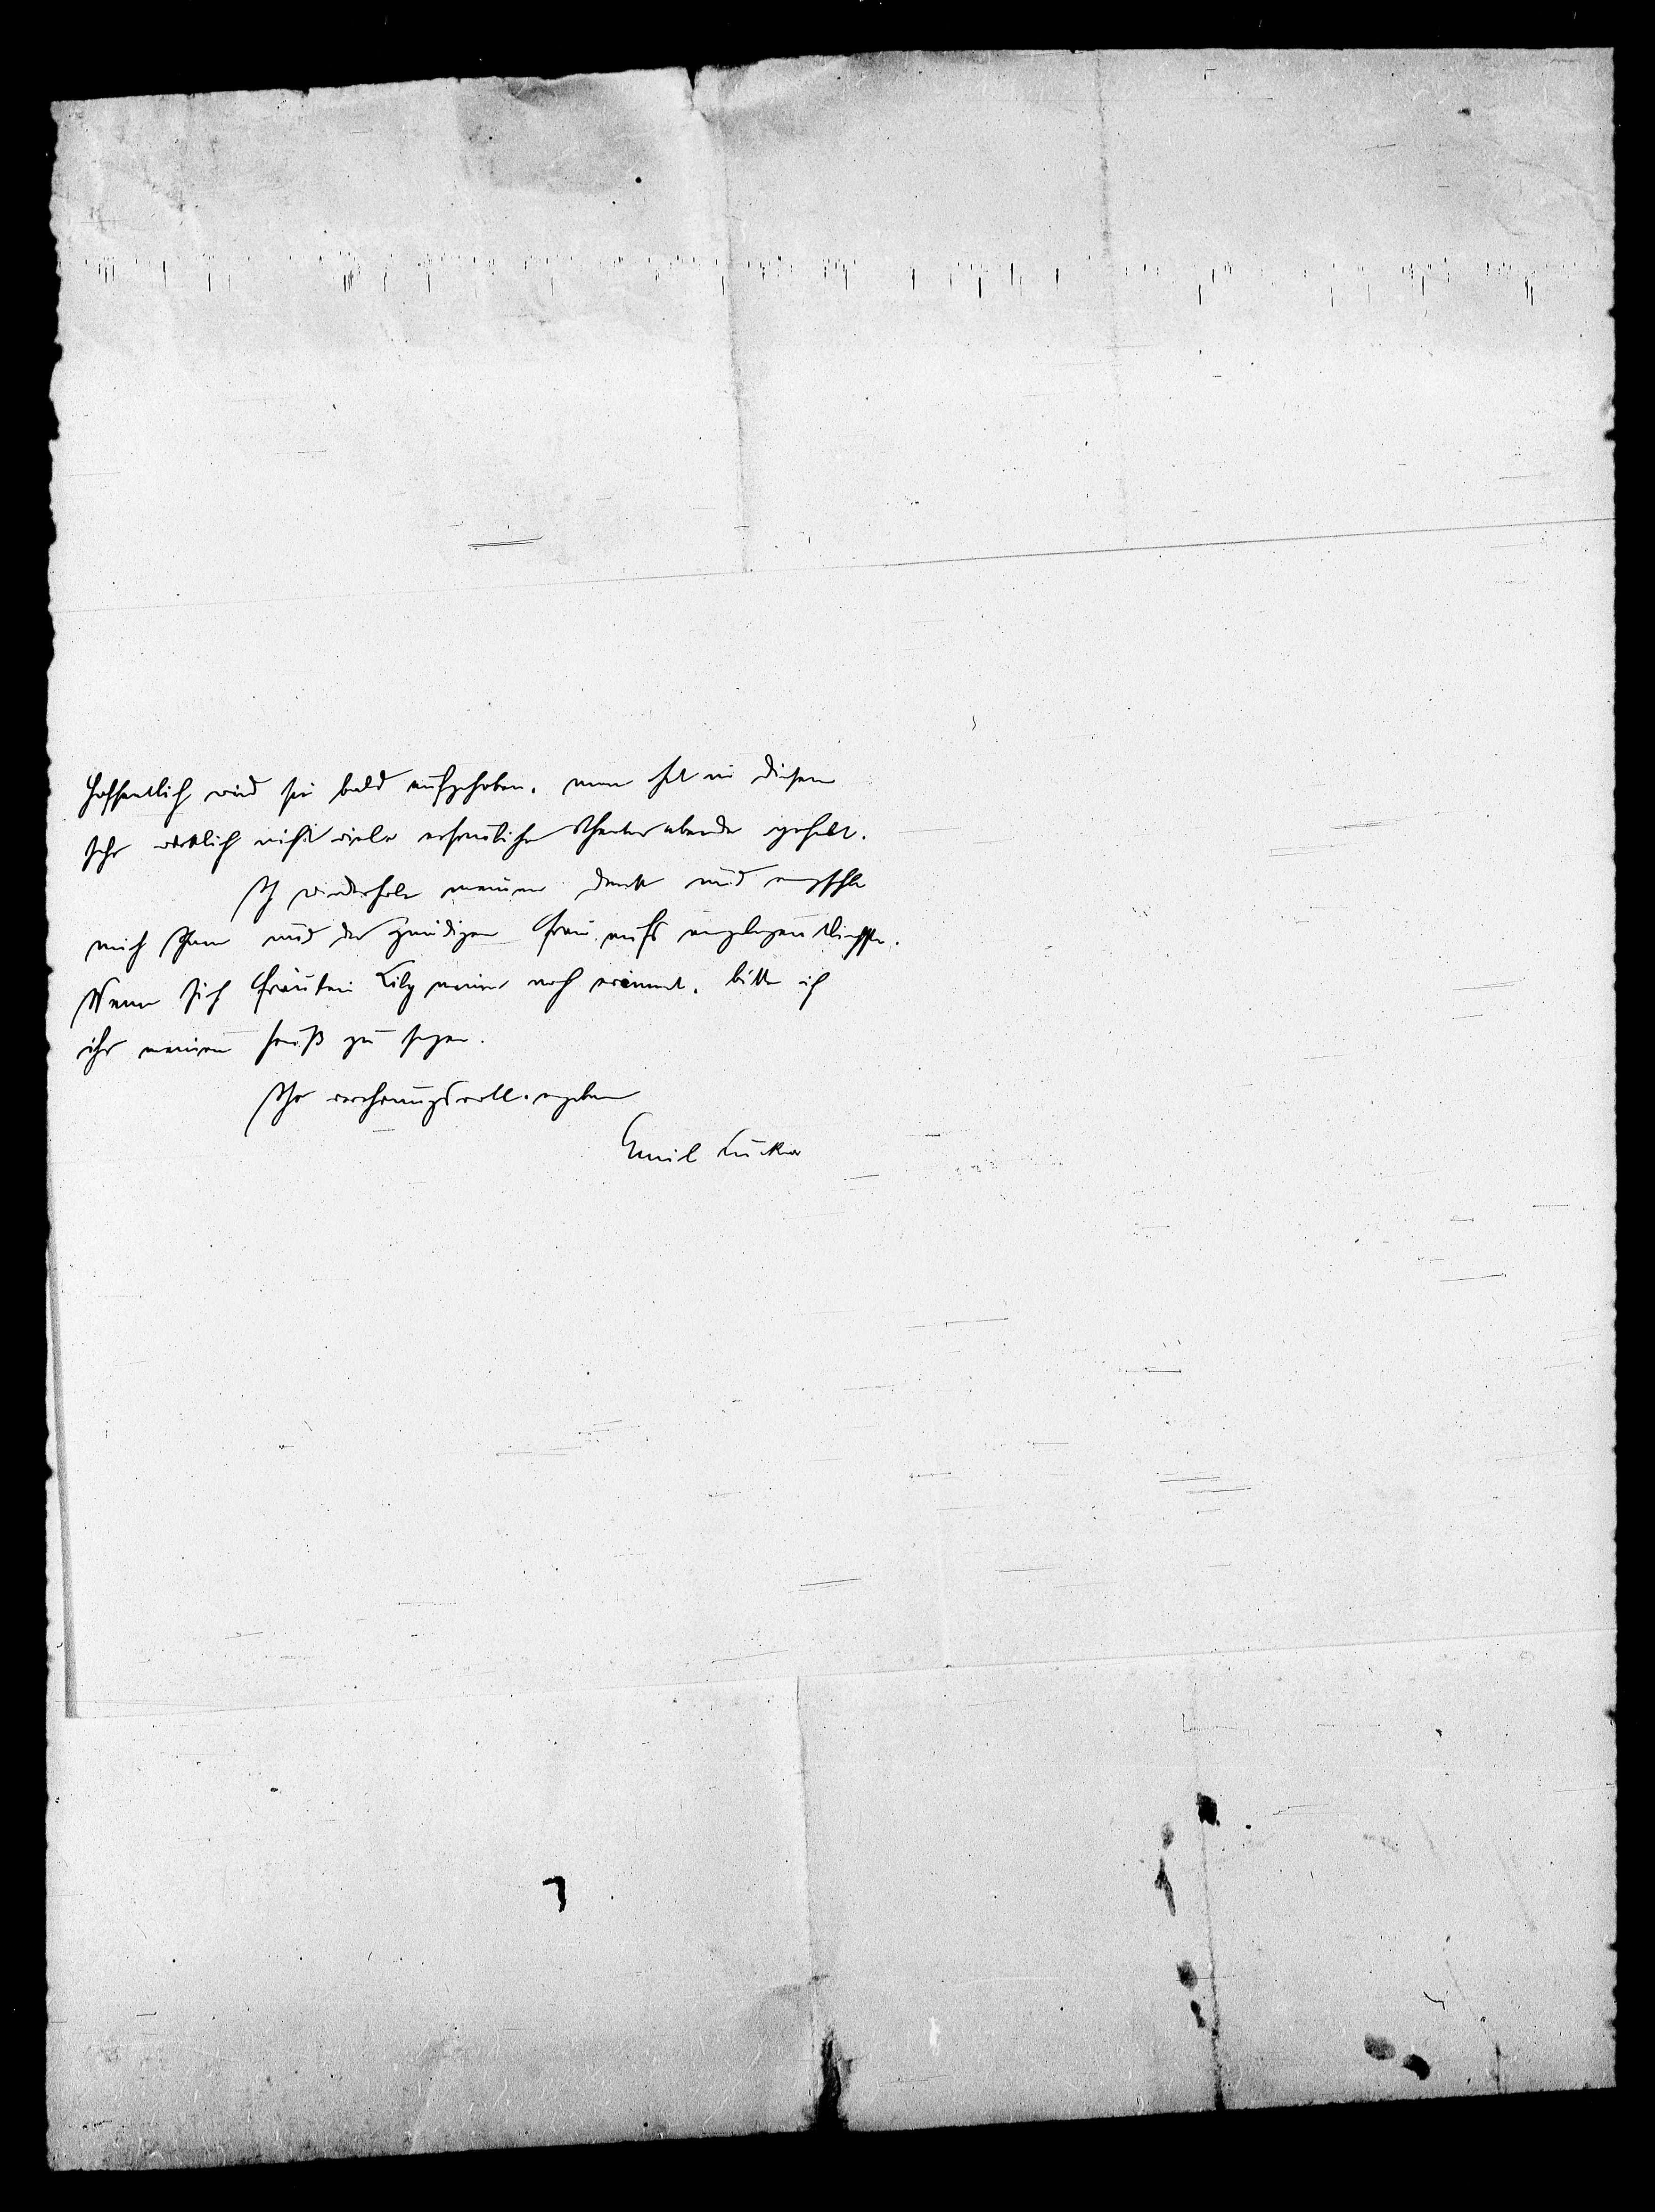 Hoffentlich wird sie bald aufgehoben, man hat in diesem
Jahr wirklich nicht viele erfreuliche Theaterabende gehabt.
Ich wiederhole meinen Dank und empfehle
mich Ihnen und der gnädigen Frau aufs angelegentlichste.
Wenn sich Fräulein Lily meiner noch erinnert, bitte ich
ihr meinen Gruß zu sagen.
Ihr verehrungsvoll ergebener
Emil Lucka